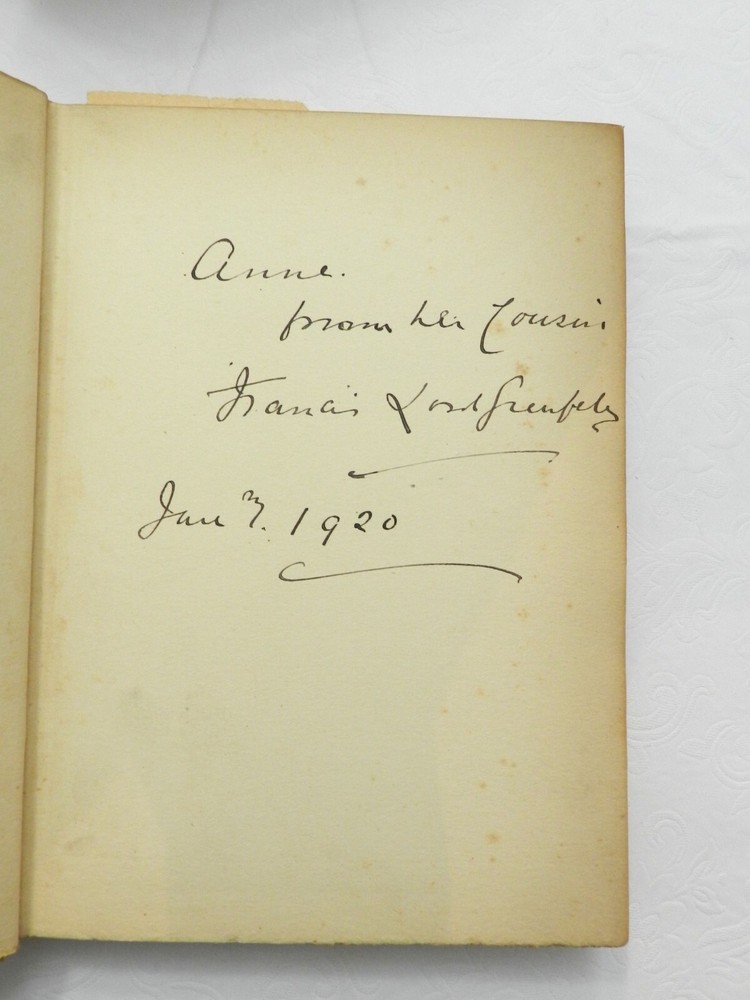 Anne.
from her Cousin
Francis Lord Grenfell
Jany. 1920